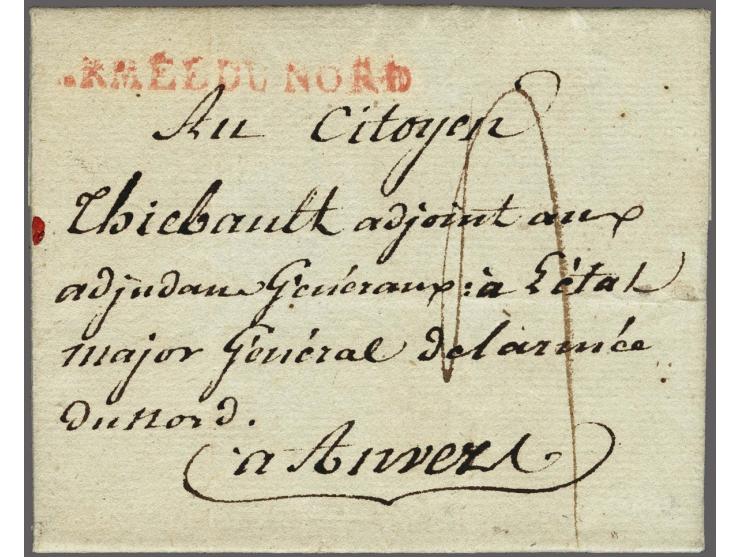 ARMÉE DU NORD
Au Citoyen
Thiebault adjoint aux
adjudans Généraux à L'état
major Général de l'armée
du nord.
a Anvers